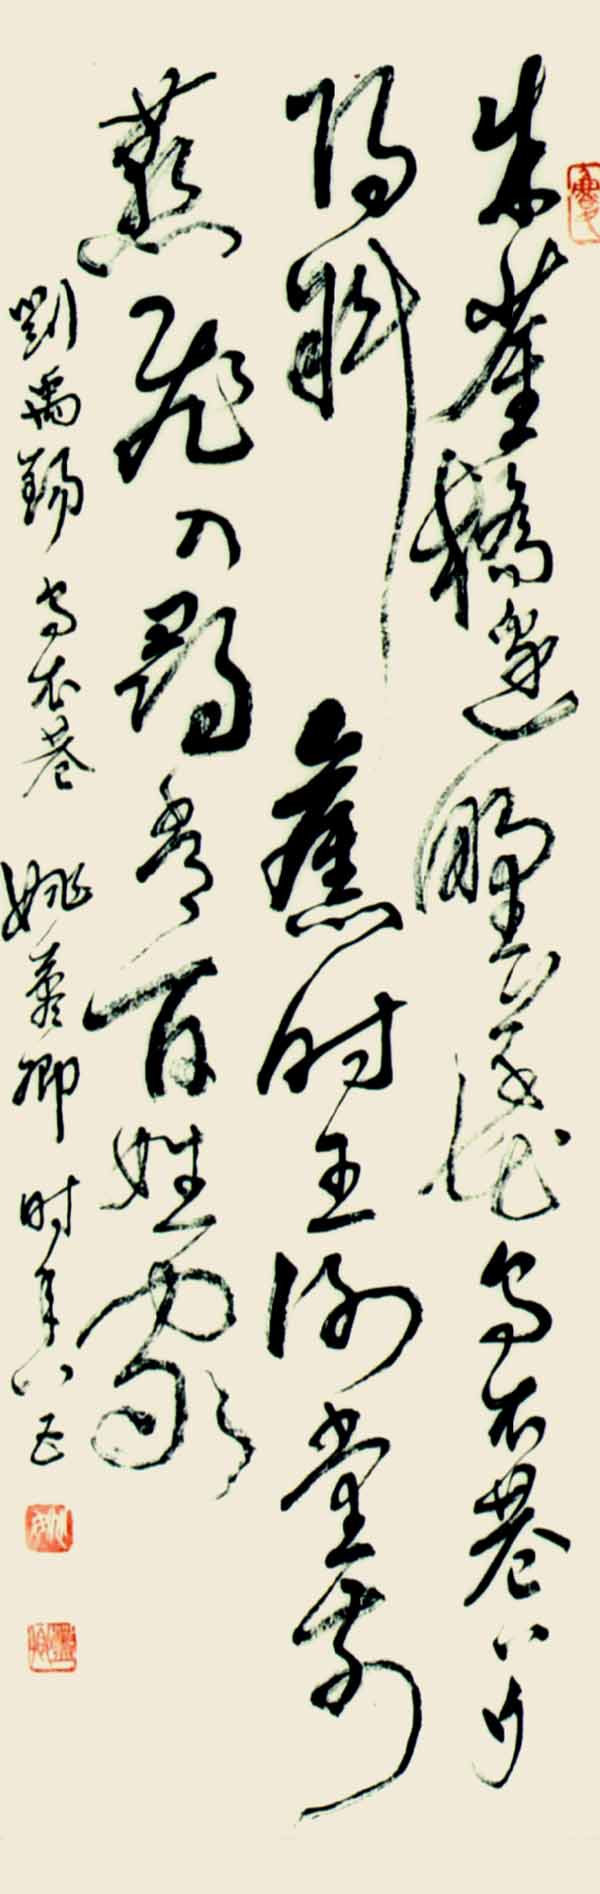 朱雀橋邊野草花烏衣巷口夕
陽斜舊時王謝堂前
燕飛入尋常百姓家
劉禹錫烏衣巷姚葊卿时年八五